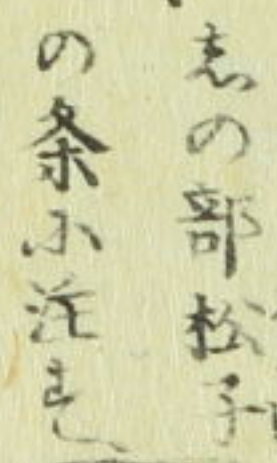 志の部松子
の条に注す